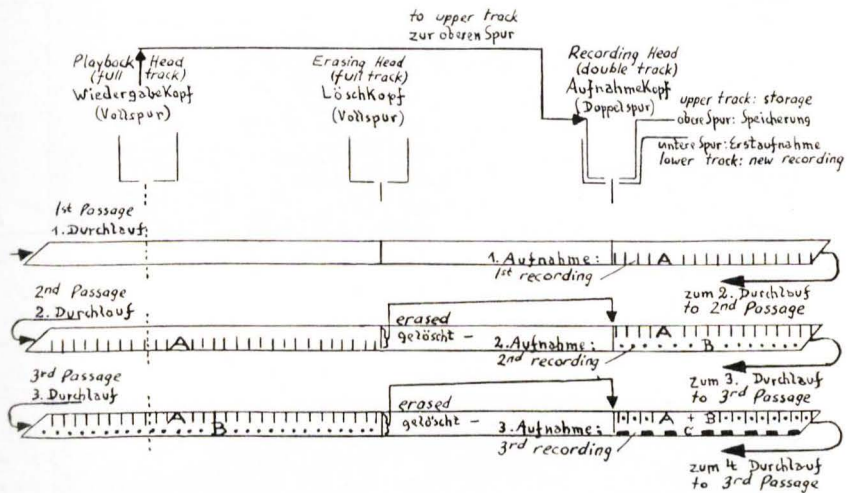 to upper track
zur oberen Spur
Playback Head
(full track)
WiedergabeKopf
(Vollspur)
Erasing Head
(full track)
LöschKopf
(Vollspur)
Recording Head
(double track)
AufnahmeKopf
(Doppelspur)
upper track: storage
obere Spur: Speicherung
untere Spur: Erstaufnahme
lower track: new recording
1st Passage
1. Durchlauf
1. Aufnahme: A
1st recording
zum 2. Durchlauf
to 2nd Passage
2nd Passage
2. Durchlauf
A
erased
gelöscht –
2. Aufnahme:
2nd recording
A
B
zum 3. Durchlauf
to 3rd Passage
3rd Passage
3. Durchlauf
A
B
erased
gelöscht –
3. Aufnahme:
3rd recording
A + B
C
zum 4 Durchlauf
to 3rd Passage